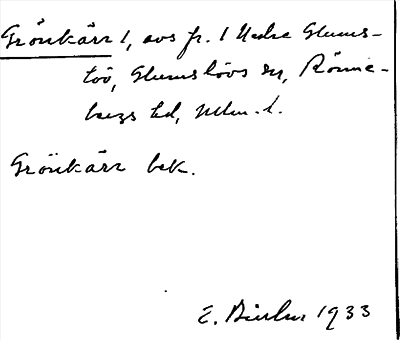 Grönkärr 1, avs fr. 1 Nedre Glums-
löv, Glumslövs sn, Rönne-
bergs hd, Mlm. l.
Grönkärr bek.
E. 1933